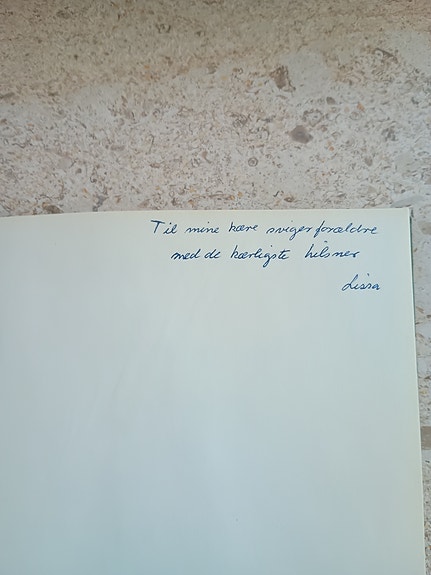 Til mine kære svigerforældre
med de kærligste hilsner
Lissa